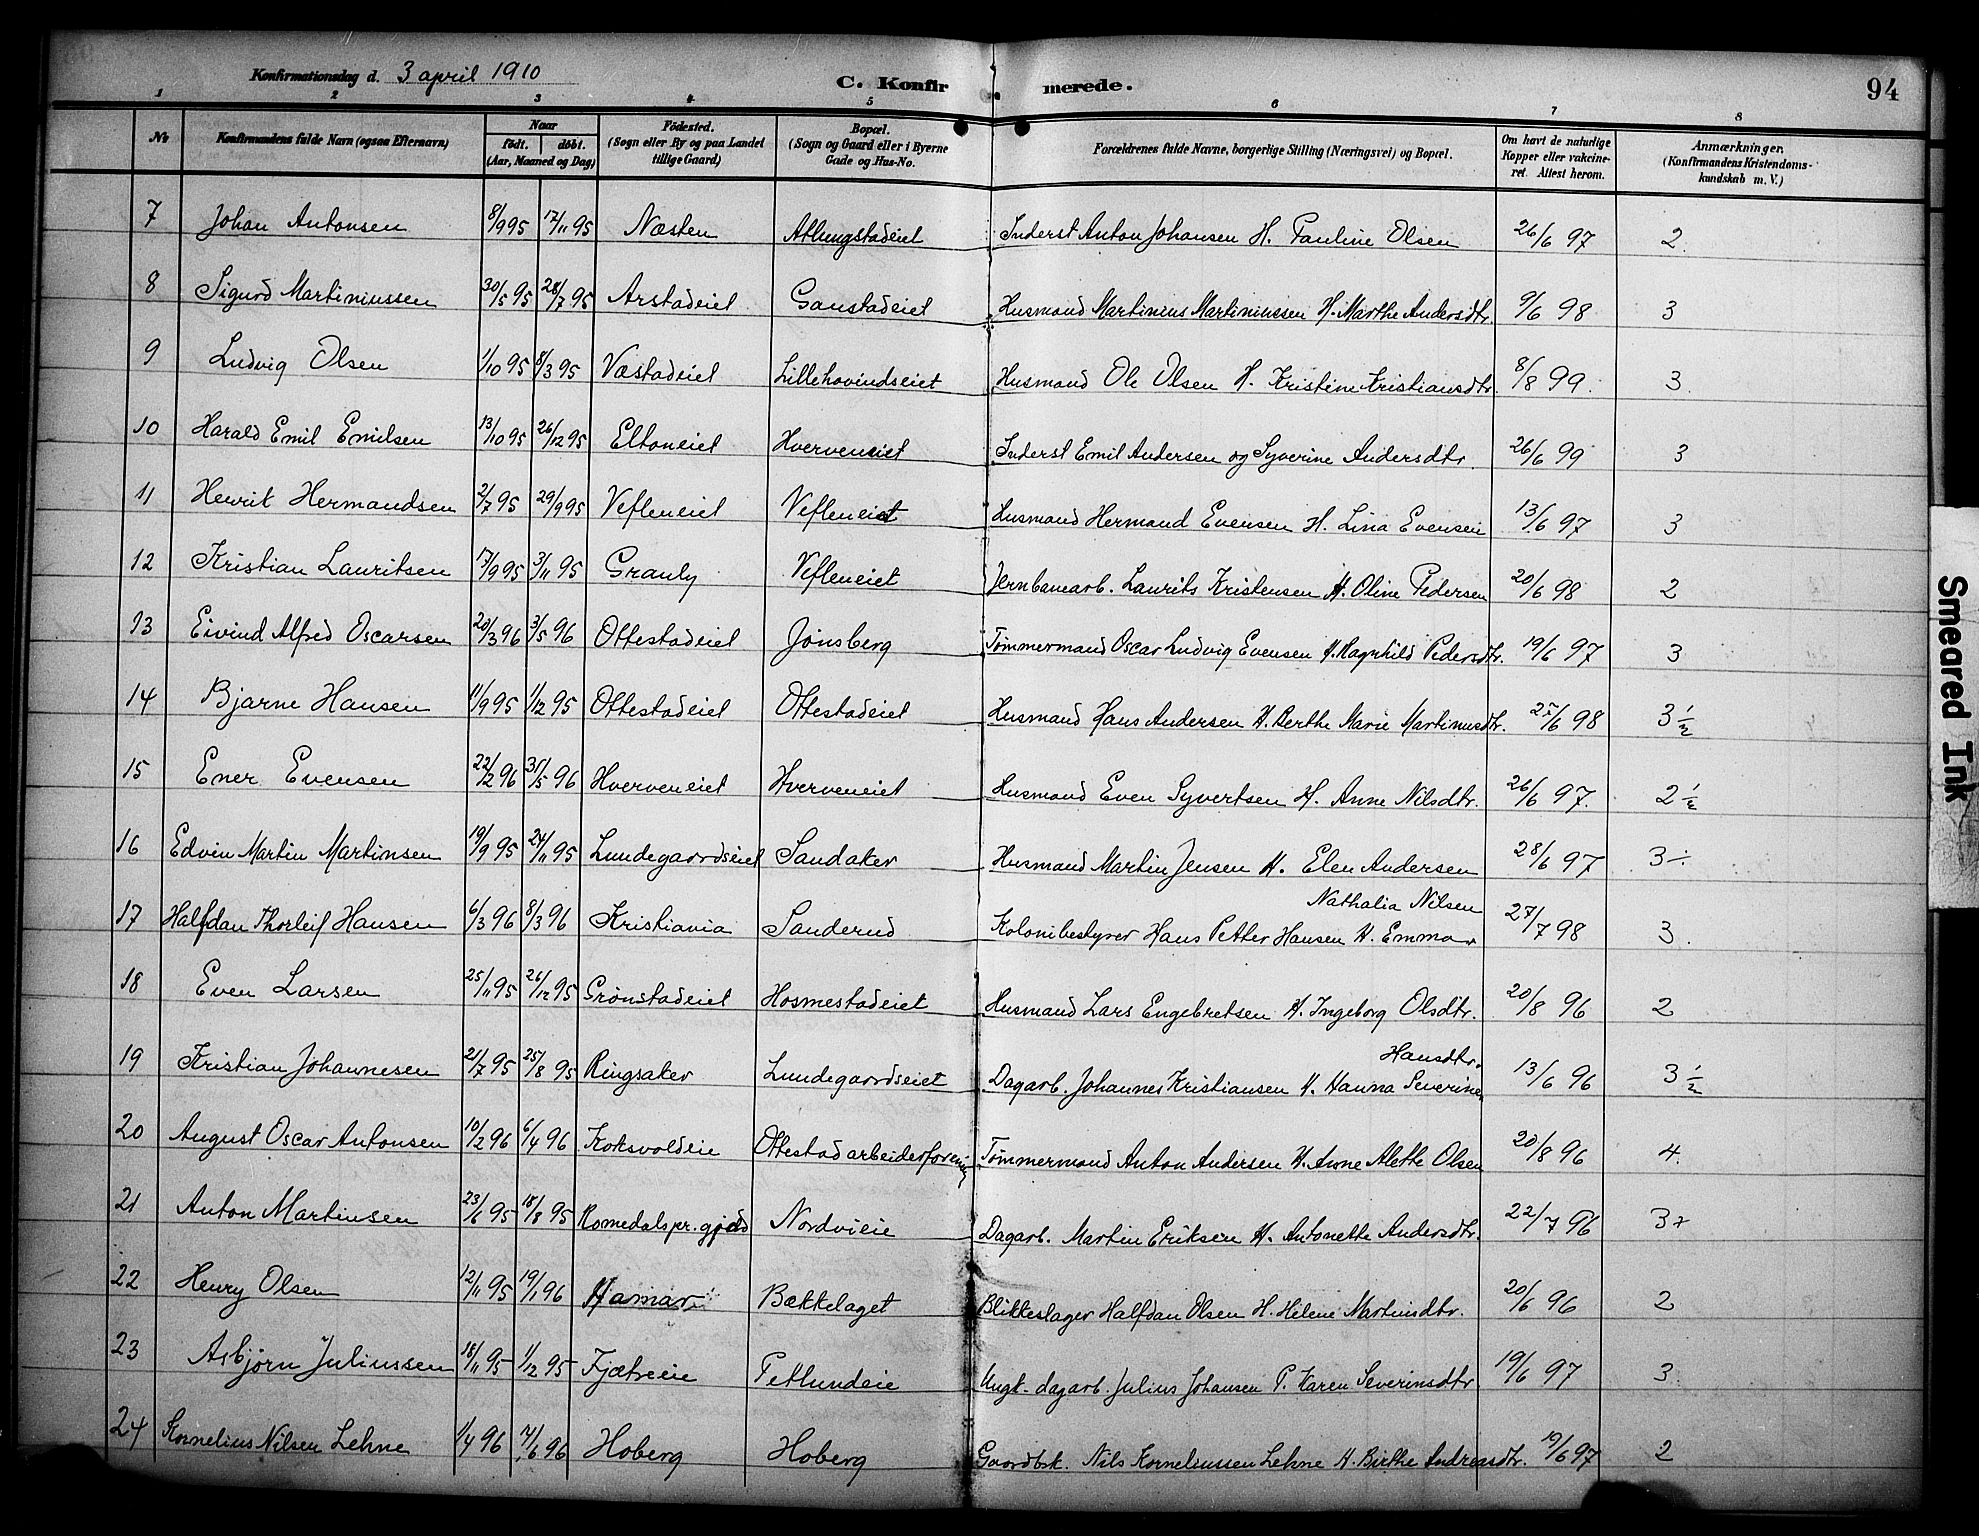 Konfirmationsdag d. 3 april 1910
C. Konfirmerede.
94
1 2 3 4 5 6 7 8
No
Konfirmandens fulde Navn (ogsaa Efternavn)
Naar
født. døbt.
(Aar, Maaned og Dag)
Fødested.
(Sogn eller By og paa Landet
tillige Gaard)
Bopæl.
(Sogn og Gaard eller i Byerne
Gade og Hus-No.
Forældrenes fulde Navne, borgerlige Stilling (Næringsvei) og Bopæl.
Om havt de naturlige
Kopper eller vakcine-
ret. Attest herom.
Anmærkninger.
(Konfirmandens Kristendoms-
kundskab m. V.)
7 Johan Antonsen 8/9 95 17/11 95 Næsten Atlungstadeiet Inderst Anton Johansen H. Pauline Olsen 26/6 97 2.
8 Sigurd Martiniussen 30/5 95 28/7 95 Arstadeiet Gaustadeiet Husmand Martinius Martiniussen H. Marthe Andersdtr. 9/6 98 3
9 Ludvig Olsen 1/10 95 8/3 95 Væstadeiet Lillehovindseiet Husmand Ole Olsen H. Kristine Kristiansdtr. 8/8 99. 3.
10 Harald Emil Emilsen 13/10 95 26/12 95 Eltoneiet Hverveneiet Inderst Emil Andersen og Syverine Andersdtr. 26/6 99 3
11 Henrik Hermandsen 2/7 95 29/9 95 Vefleneiet Vefleneiet Husmand Hermand Evensen H. Lina Evensen 13/6 97 3
12 Kristian Lauritsen 17/9 95 3/11 95 Granly Vefleneiet Jernbanearb. Laurits Kristensen H. Oline Pedersen 20/6 98 2
13 Eivind Alfred Oscarsen 20/3 96 3/5 96 Ottestadeiet Jønsberg Tømmermand Oscar Ludvig Evensen H. Ragnhild Pedersdtr. 19/6 97 3
14 Bjarne Hansen 11/9 95 1/12 95 Ottestadeiet Ottestadeiet Husmand Hans Andersen H. Berthe Marie Martinusdtr. 27/6 98 3 1/2
15 Ener Evensen 22/2 96 31/5 96 Hverveneiet Hverveneiet Husmand Even Syvertsen H. Anne Nilsdtr. 26/6 97. 2 1/2
16 Edvin Martin Martinsen 19/9 95 24/11 95 Lundegaardseiet Sandaker Husmand Martin Jensen H. Elen Andersen 28/6 97 3 ÷
Nathalia Nilsen
17 Halfdan Thorleif Hansen 6/3 96 8/3 96 Kristiania Sanderud Kolonibestyrer Hans Petter Hansen H. Emma 27/7 98 3.
18 Even Larsen 25/11 95 26/12 95 Grønstadeiet Hosmestadeiet Husmand Lars Engebretsen H. Ingeborg Olsdtr. 20/8 96 2
Hansdtr.
19 Kristian Johannesen 21/7 95 25/8 95 Ringsaker Lundegaardseiet Dagarb. Johannes Kristiansen H. Hanna Severine 13/6 96 3 1/2
20 August Oscar Antonsen 10/2 96 6/4 96 Koksvoldeie Ottestad arbeiderforening Tømmermand Anton Andersen H. Anne Alette Olsen 20/8 96 4.
21 Anton Martinsen 23/6 95 18/8 95 Romedals pr. gjæld Nordvieie Dagarb. Martin Eriksen H. Antonette Andersdtr. 22/7 96 3+
22 Henry Olsen 12/11 95 19/1 96 Hamar Bækkelaget Blikkeslager Halfdan Olsen H. Helene Martinsdtr. 20/6 96 2
23 Asbjørn Juliussen 18/11 95 1/12 95 Fjætreeie Petlundeie Ungk. dagarb. Julius Johansen P. Karen Severinsdtr 19/6 97 3
24 Kornelius Nilsen Lehne 1/4 96 7/6 96 Hoberg Hoberg Gaardbk. Nils Korneliussen Lehne H. Birthe Andreasdtr. 19/6 97 2
Smeared Ink